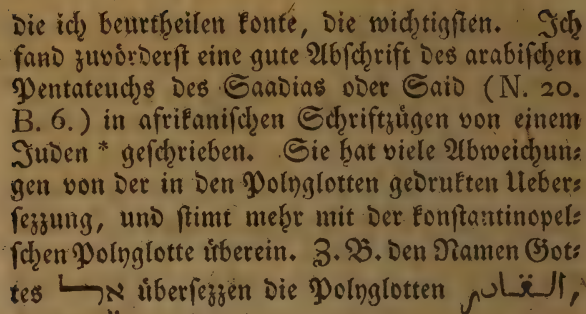 die ich beurtheilen konte, die wichtigsten. Ich
fand zuvörderst eine gute Abschrift des arabischen
Pentateuchs des Saadias oder Said (N. 20.
B. 6.) in afrikanischen Schriftzügen von einem
Juden * geschrieben. Sie hat viele Abweichun=
gen von der in den Polyglotten gedrukten Ueber=
sezzung, und stimt mehr mit der konstantinopel=
schen Polyglotte überein. Z. B. den Namen Got=
tes übersezzen die Polyglotten القادر,